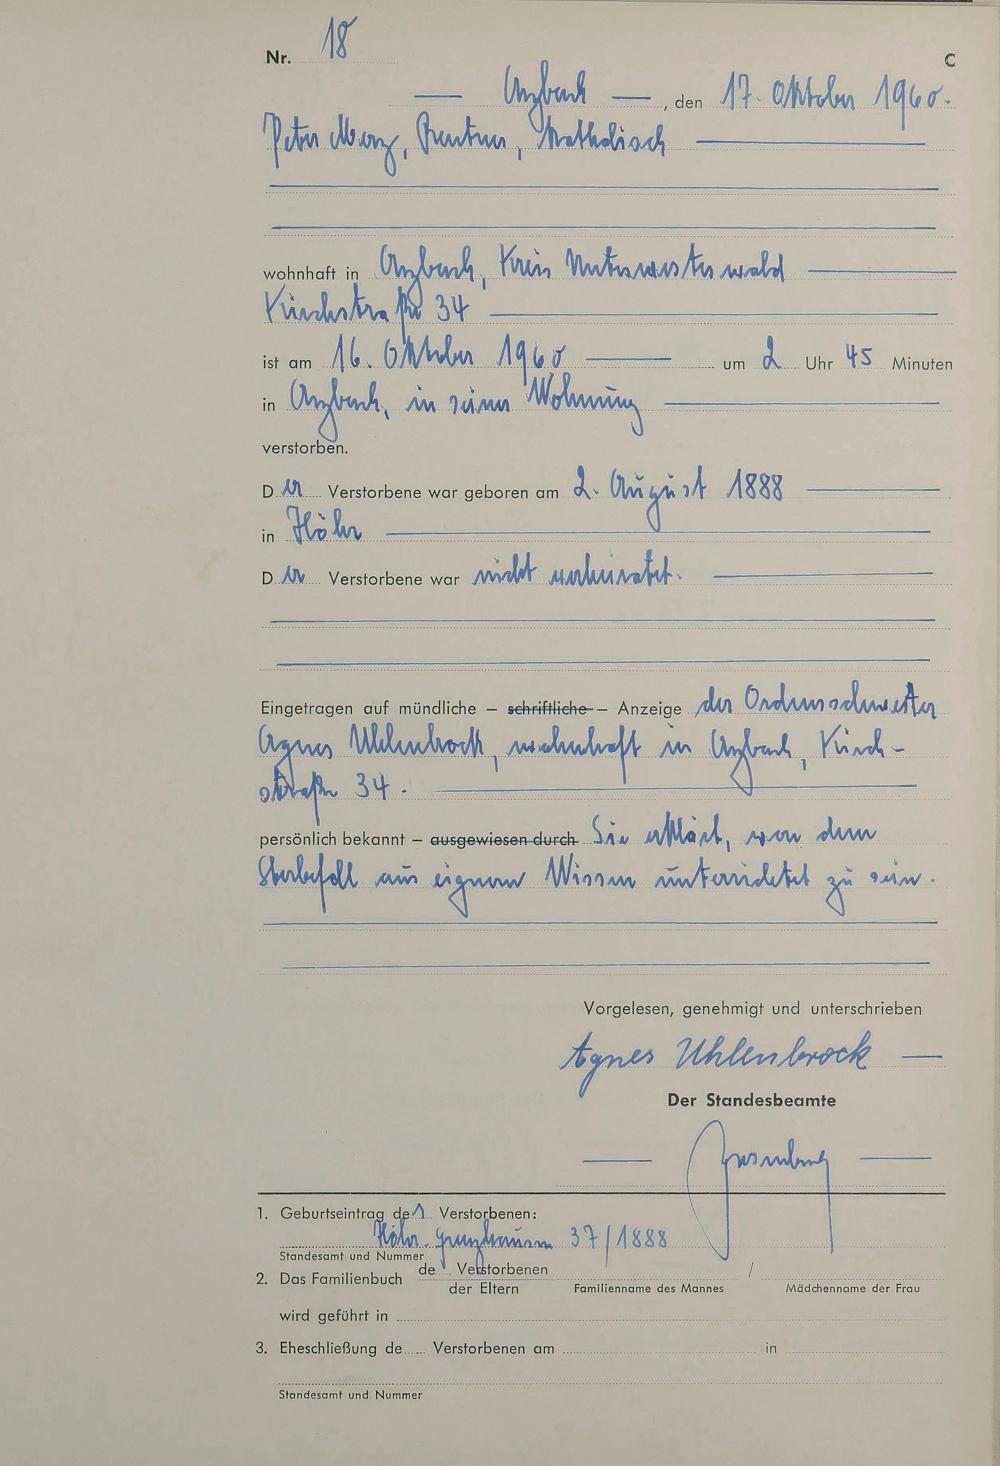 Nr. 18
C
— Arzbach —, den 17. Oktober 1960.
Peter Merz, Rentner, katholisch
wohnhaft in Arzbach, Kreis Unterwesterwald
Kirchstraße 34
ist am 16. Oktober 1960 um 2 Uhr 45 Minuten
in Arzbach, in seiner Wohnung
verstorben.
Der Verstorbene war geboren am 2. August 1888
in Höhr
Der Verstorbene war nicht verheiratet.
Eingetragen auf mündliche – schriftliche – Anzeige der Ordensschwester
Agnes Uhlenbrock, wohnhaft in Arzbach, Kirch-
straße 34.
persönlich bekannt – ausgewiesen durch Sie erklärt, von dem
Sterbefall aus eignem Wissen unterrichtet zu sein.
Vorgelesen, genehmigt und unterschrieben
Agnes Uhlenbrock
Der Standesbeamte
1. Geburtseintrag des Verstorbenen:
Höhr-Grenzhausen 37/1888
Standesamt und Nummer
2. Das Familienbuch de Verstorbenen /
der Eltern Familienname des Mannes Mädchenname der Frau
wird geführt in
3. Eheschließung de Verstorbenen am in
Standesamt und Nummer